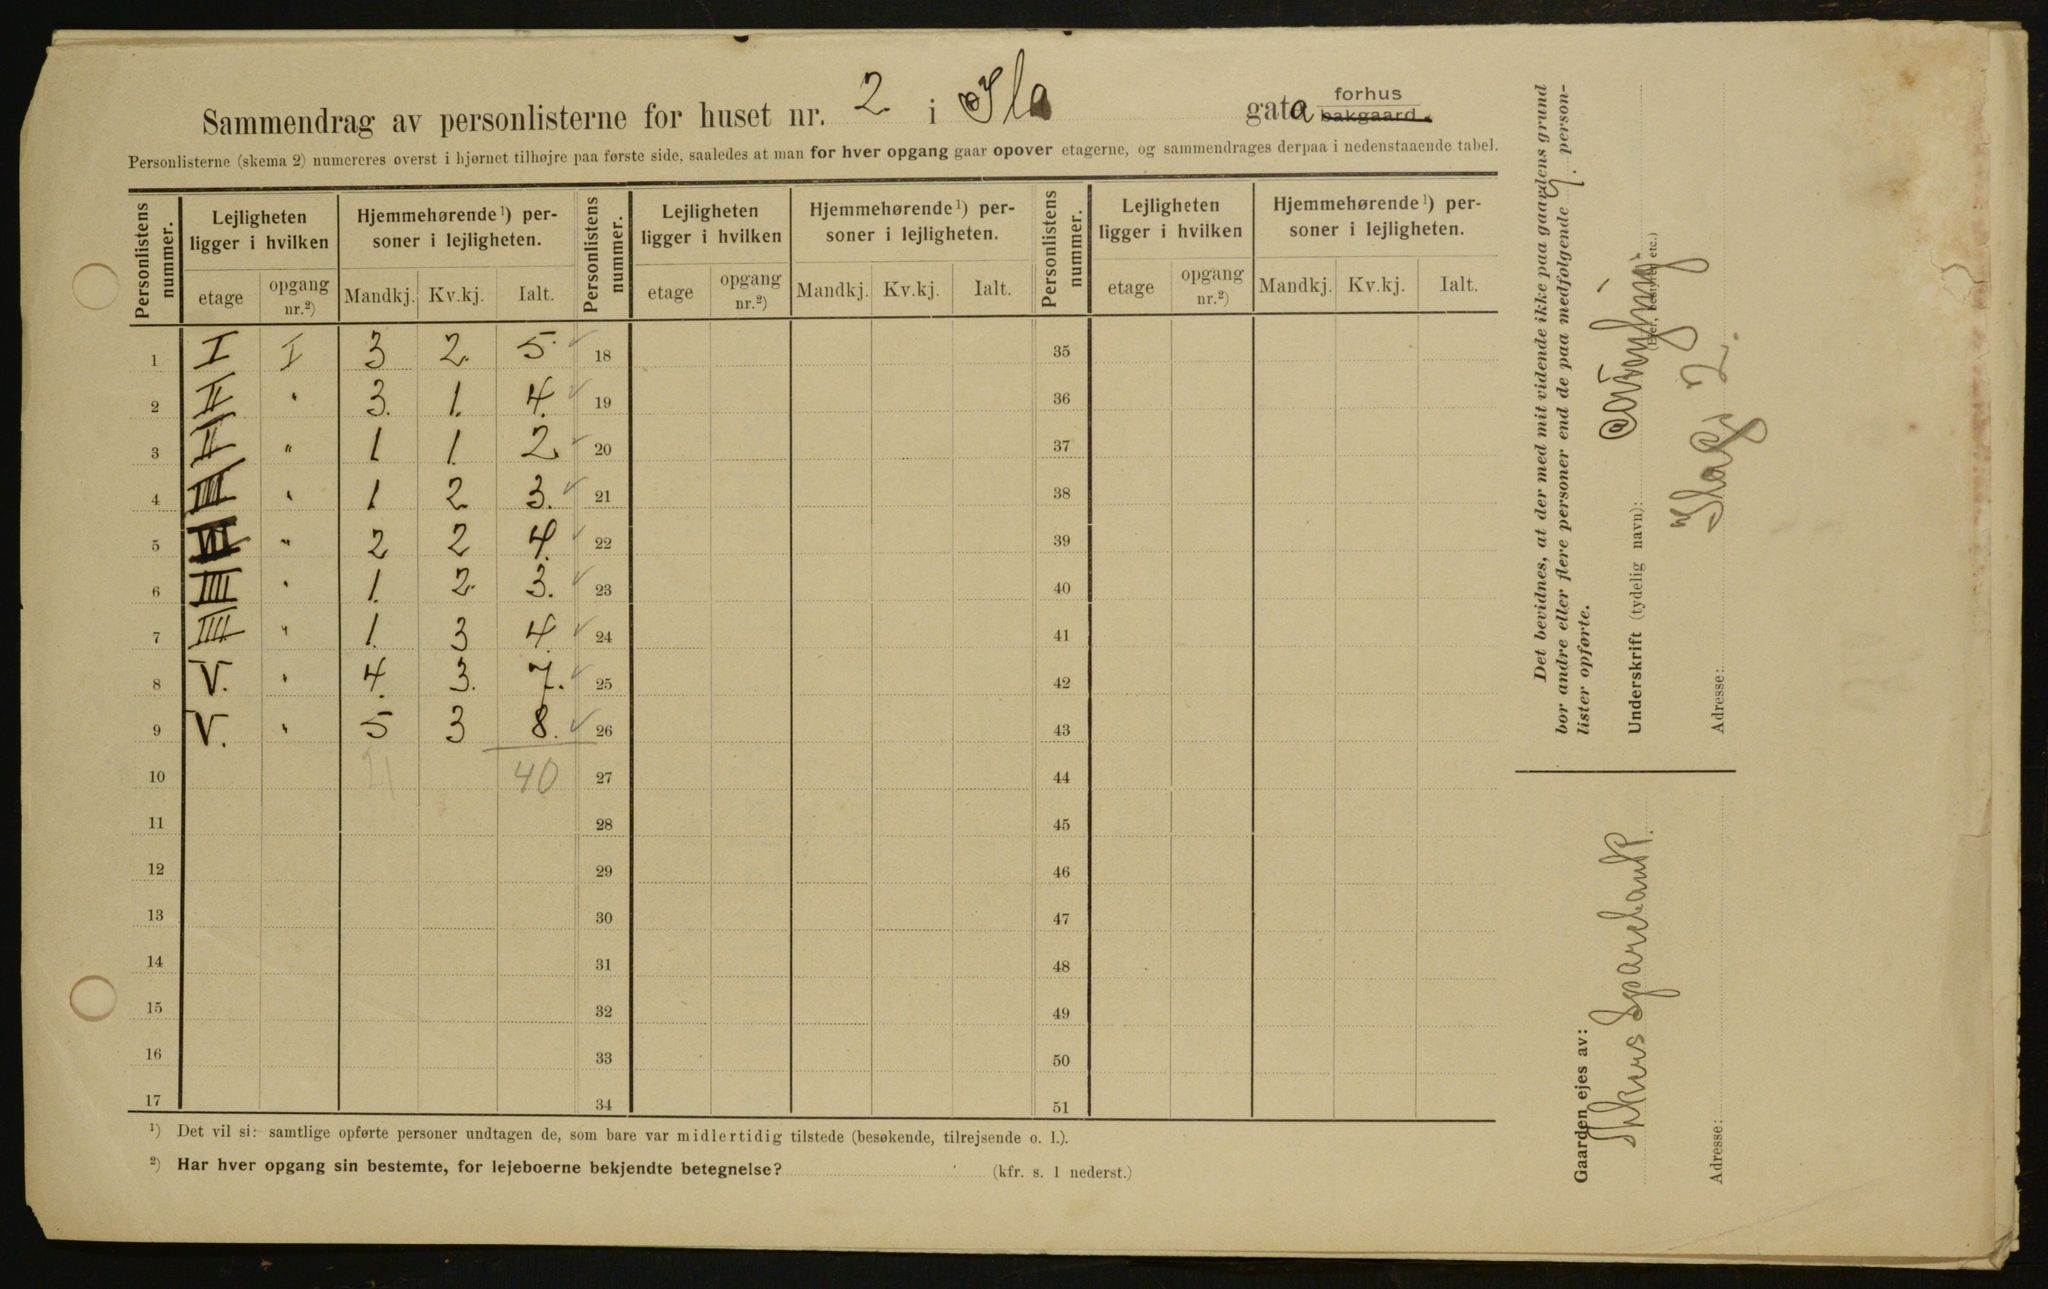 Sammendrag av personlisterne for huset nr. 2 i Ila gata forhus bakgaard.
Personlisterne (skema 2) numereres øverst i hjørnet tilhøjre paa første side, saaledes at man for hver opgang gaar opover etagerne, og sammendrages derpaa i nedenstaaende tabel.
Personlistens nummer. Lejligheten ligger i hvilken Hjemmehørende ¹) personer i lejligheten. Personlistens nummer. Lejligheten ligger i hvilken Hjemmehørende ¹) personer i lejligheten. Personlistens nummer. Lejligheten ligger i hvilken Hjemmehørende ¹) personer i lejligheten.
etage opgang nr.²) Mandkj. Kv.kj. Ialt. etage opgang nr.²) Mandkj. Kv.kj. Ialt. etage opgang nr.²) Mandkj. Kv.kj. Ialt.
1 I I 3 2. 5. 18 35
2 II " 3. 1. 4. 19 36
3 II " 1 1. 2 20 37
4 III " 1 2 3. 21 38
5 III " 2 2 4. 22 39
6 IIII " 1. 2. 3. 23 40
7 IIII. " 1. 3 4. 24 41
8 V. " 4. 3. 7. 25 42
9 V. " 5 3 8. 26 43
10 21 40 27 44
11 28 45
12 29 46
13 30 47
14 31 48
15 32 49
16 33 50
17 34 51
¹) Det vil si: samtlige opførte personer undtagen de, som bare var midlertidig tilstede (besøkende, tilrejsende o. l.).
²) Har hver opgang sin bestemte, for lejeboerne bekjendte betegnelse? (kfr. s. 1 nederst.)
Det bevidnes, at der med mit vidende ikke paa gaardens grund
bor andre eller flere personer end de paa medfølgende 9. person-
lister opførte.
Underskrift (tydelig navn):
(Ejer, bestyrer etc.)
Adresse: Ilag 2.
Gaarden ejes av:
Sparebank
Adresse: